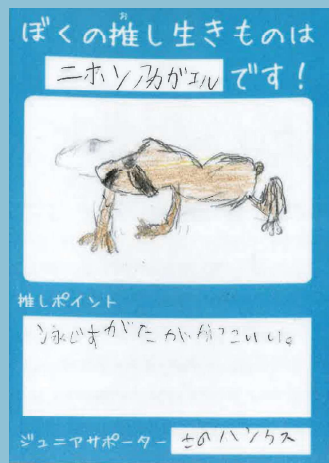 ぼくの推し生きものは
お
ニホンアカガエル です!
推しポイント
泳ぐすがたがかっこいい。
ジュニアサポーター